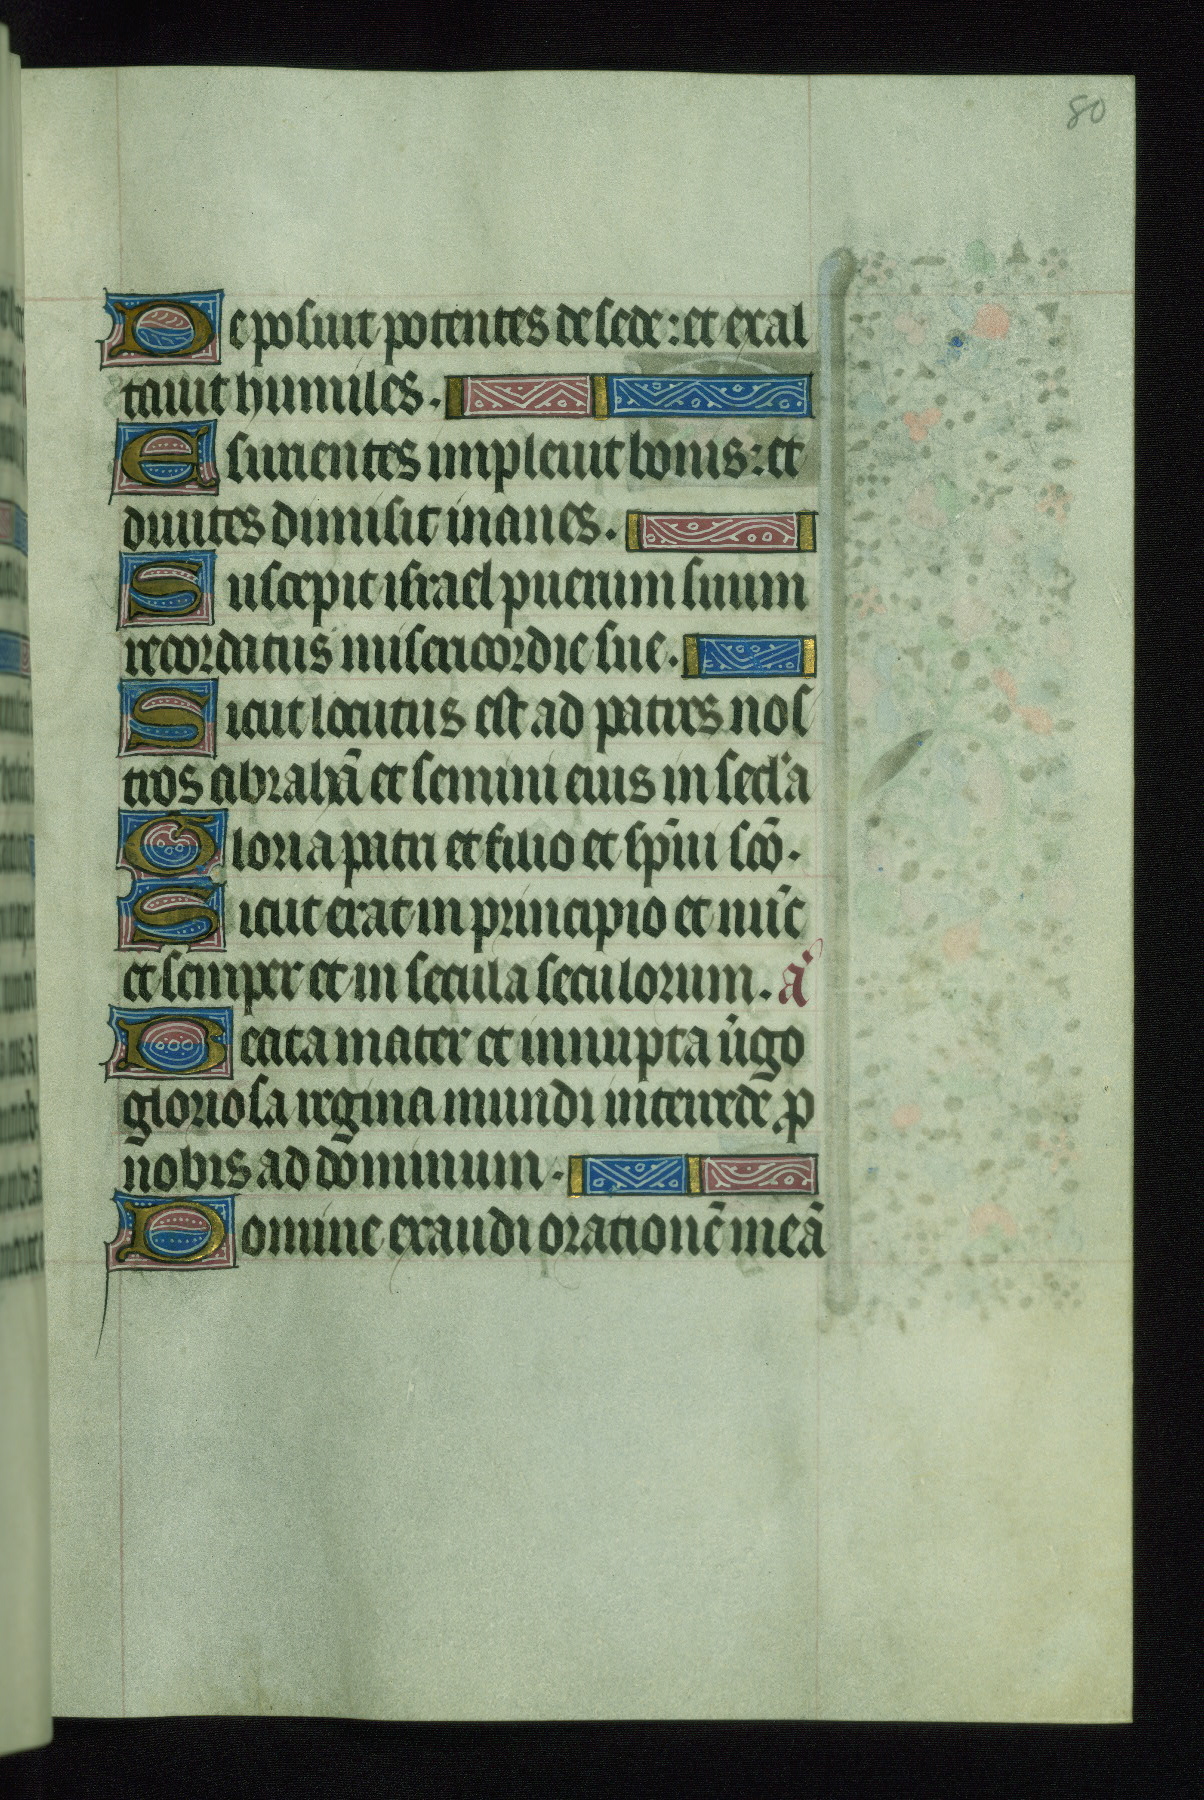 80
Deposuit potentes de sede: et exal
tauit humiles.
Esurientes impleuit bonis: et
diuites dimisit inanes.
Suscepit israel puerum suum
recordatus misericordie sue.
Sicut locutus est ad patres nos
tros abrahā et semini eius in secl'a
Gloria patri et filio et sp̄iui scō.
Sicut erat in principio et nūc
et semper et in secula seculorum. a͞
Beata mater et innupta ũgo
gloriosa regina mundi intercede ꝓ
nobis ad dominum.
Domine exaudi orationē meā